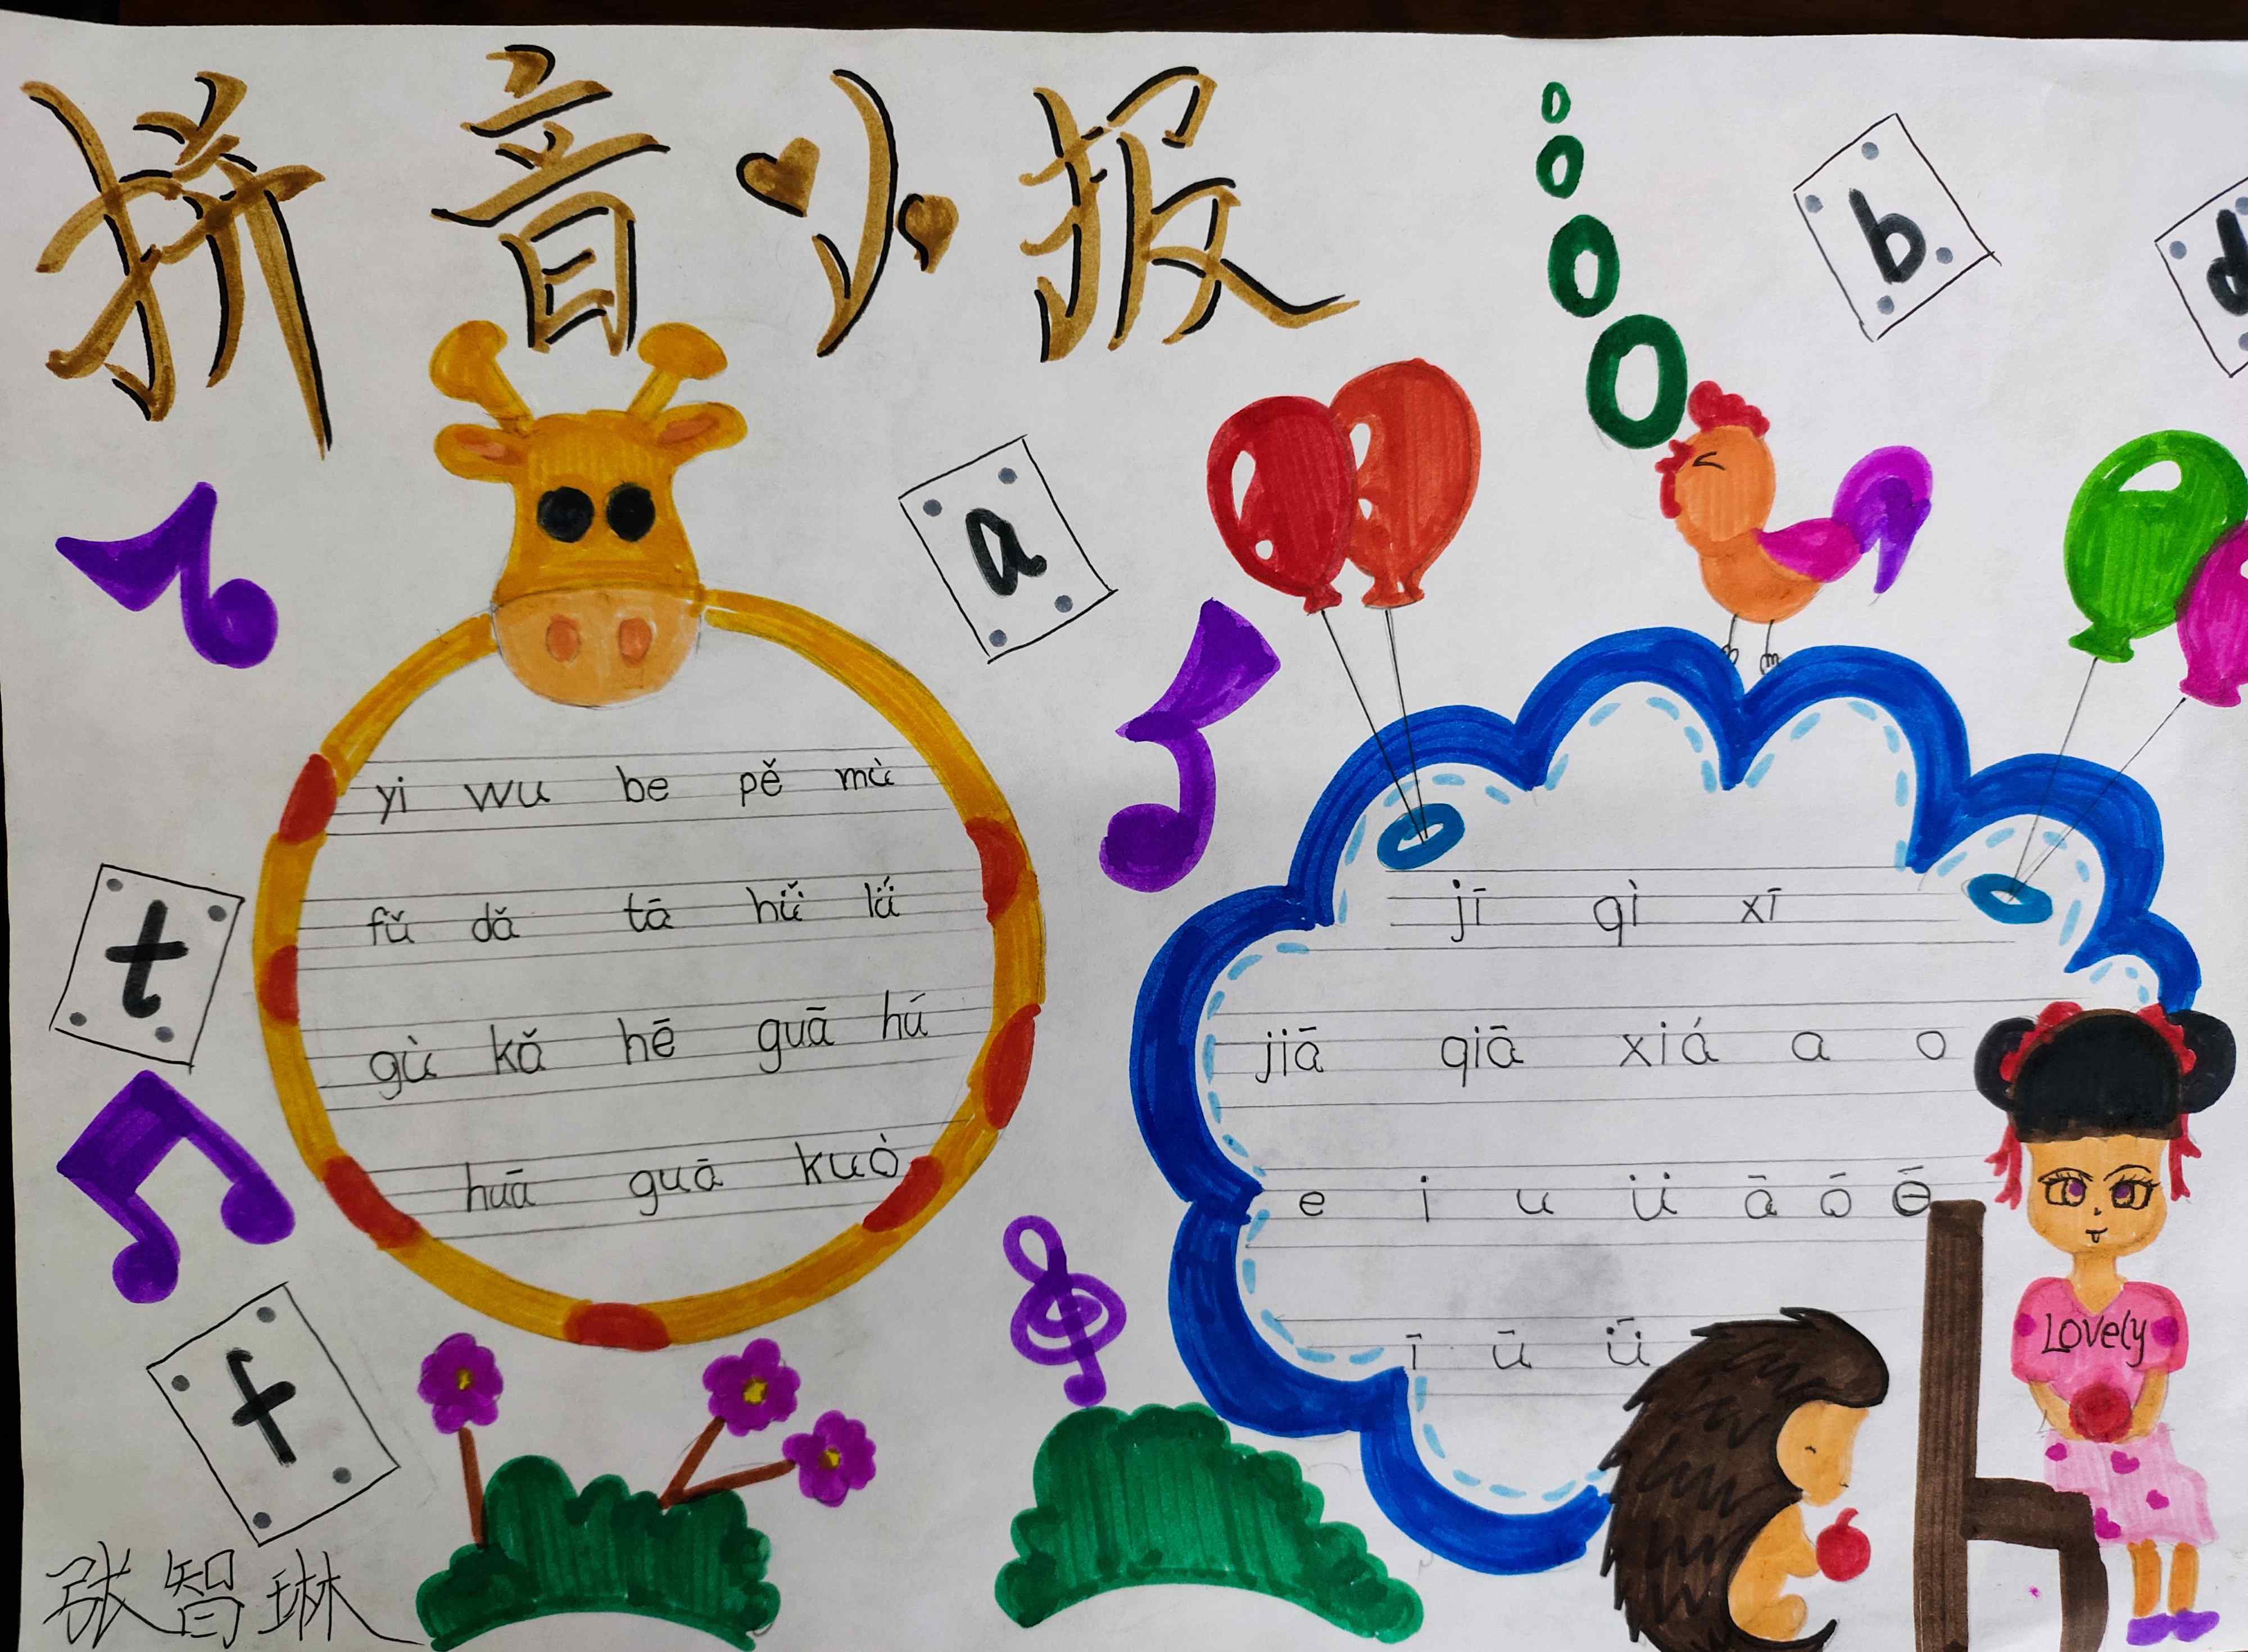 拼音小报
b
d
a
yi wu be pě mù
fǔ dǎ tā hǚ lǘ
gù kǎ hē guā hú
huā guā kuò
t
f
jī qì xī
jiā qiā xiá a o
e i u ü ā ō ē
ī ū ǖ
Lovely
张智琳